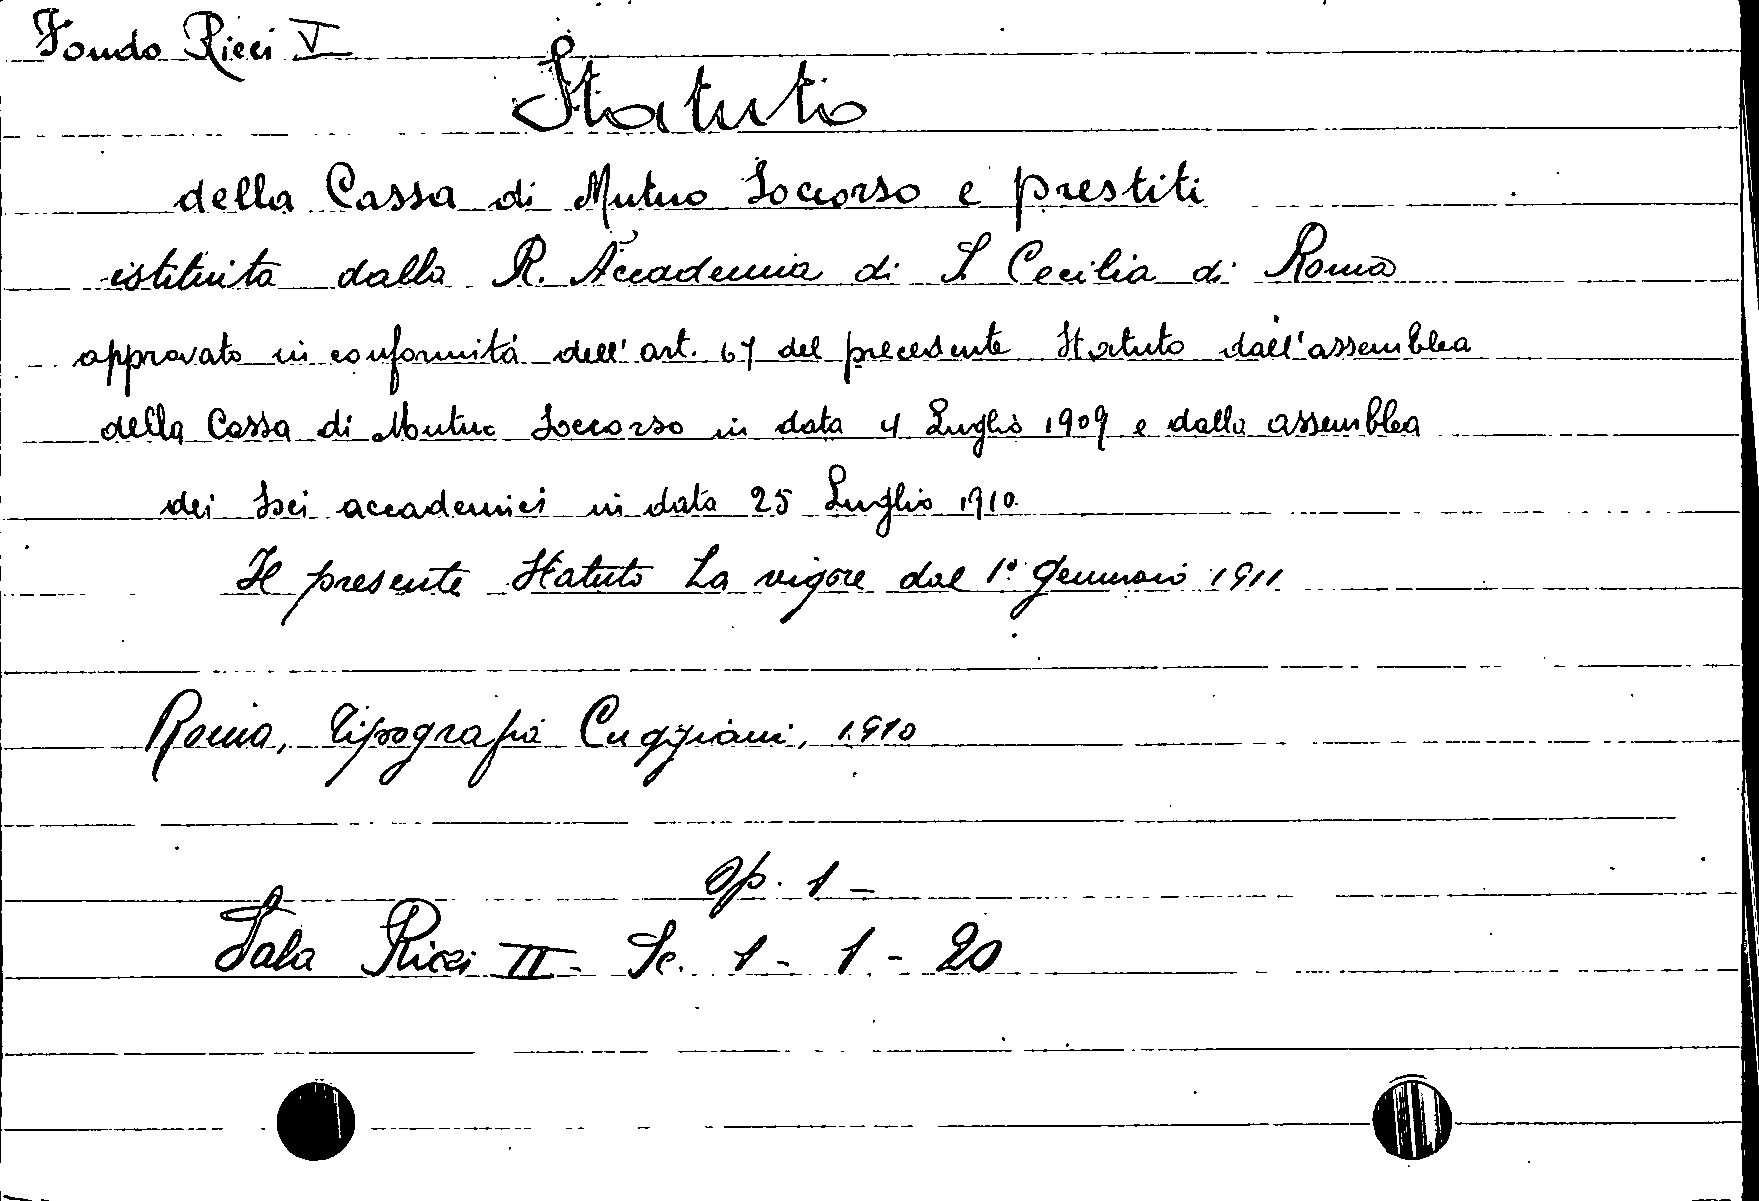 Fondo Ricci V
Statuto
della Cassa di Mutuo Soccorso e prestiti
istituita dalla R. Accademia di S. Cecilia di Roma
approvato in conformità dell'art. 67 del precedente Statuto dall'assemblea
della Cassa di Mutuo Soccorso in data 4 Luglio 1909 e dalla assemblea
dei soci accademici in data 25 Luglio 1910
Il presente Statuto ha vigore dal 1° Gennaio 1911
Roma, Tipografia Cuggiani, 1910
op. 1 -
Sala Ricci II - Sc. 1 - 1 - 20